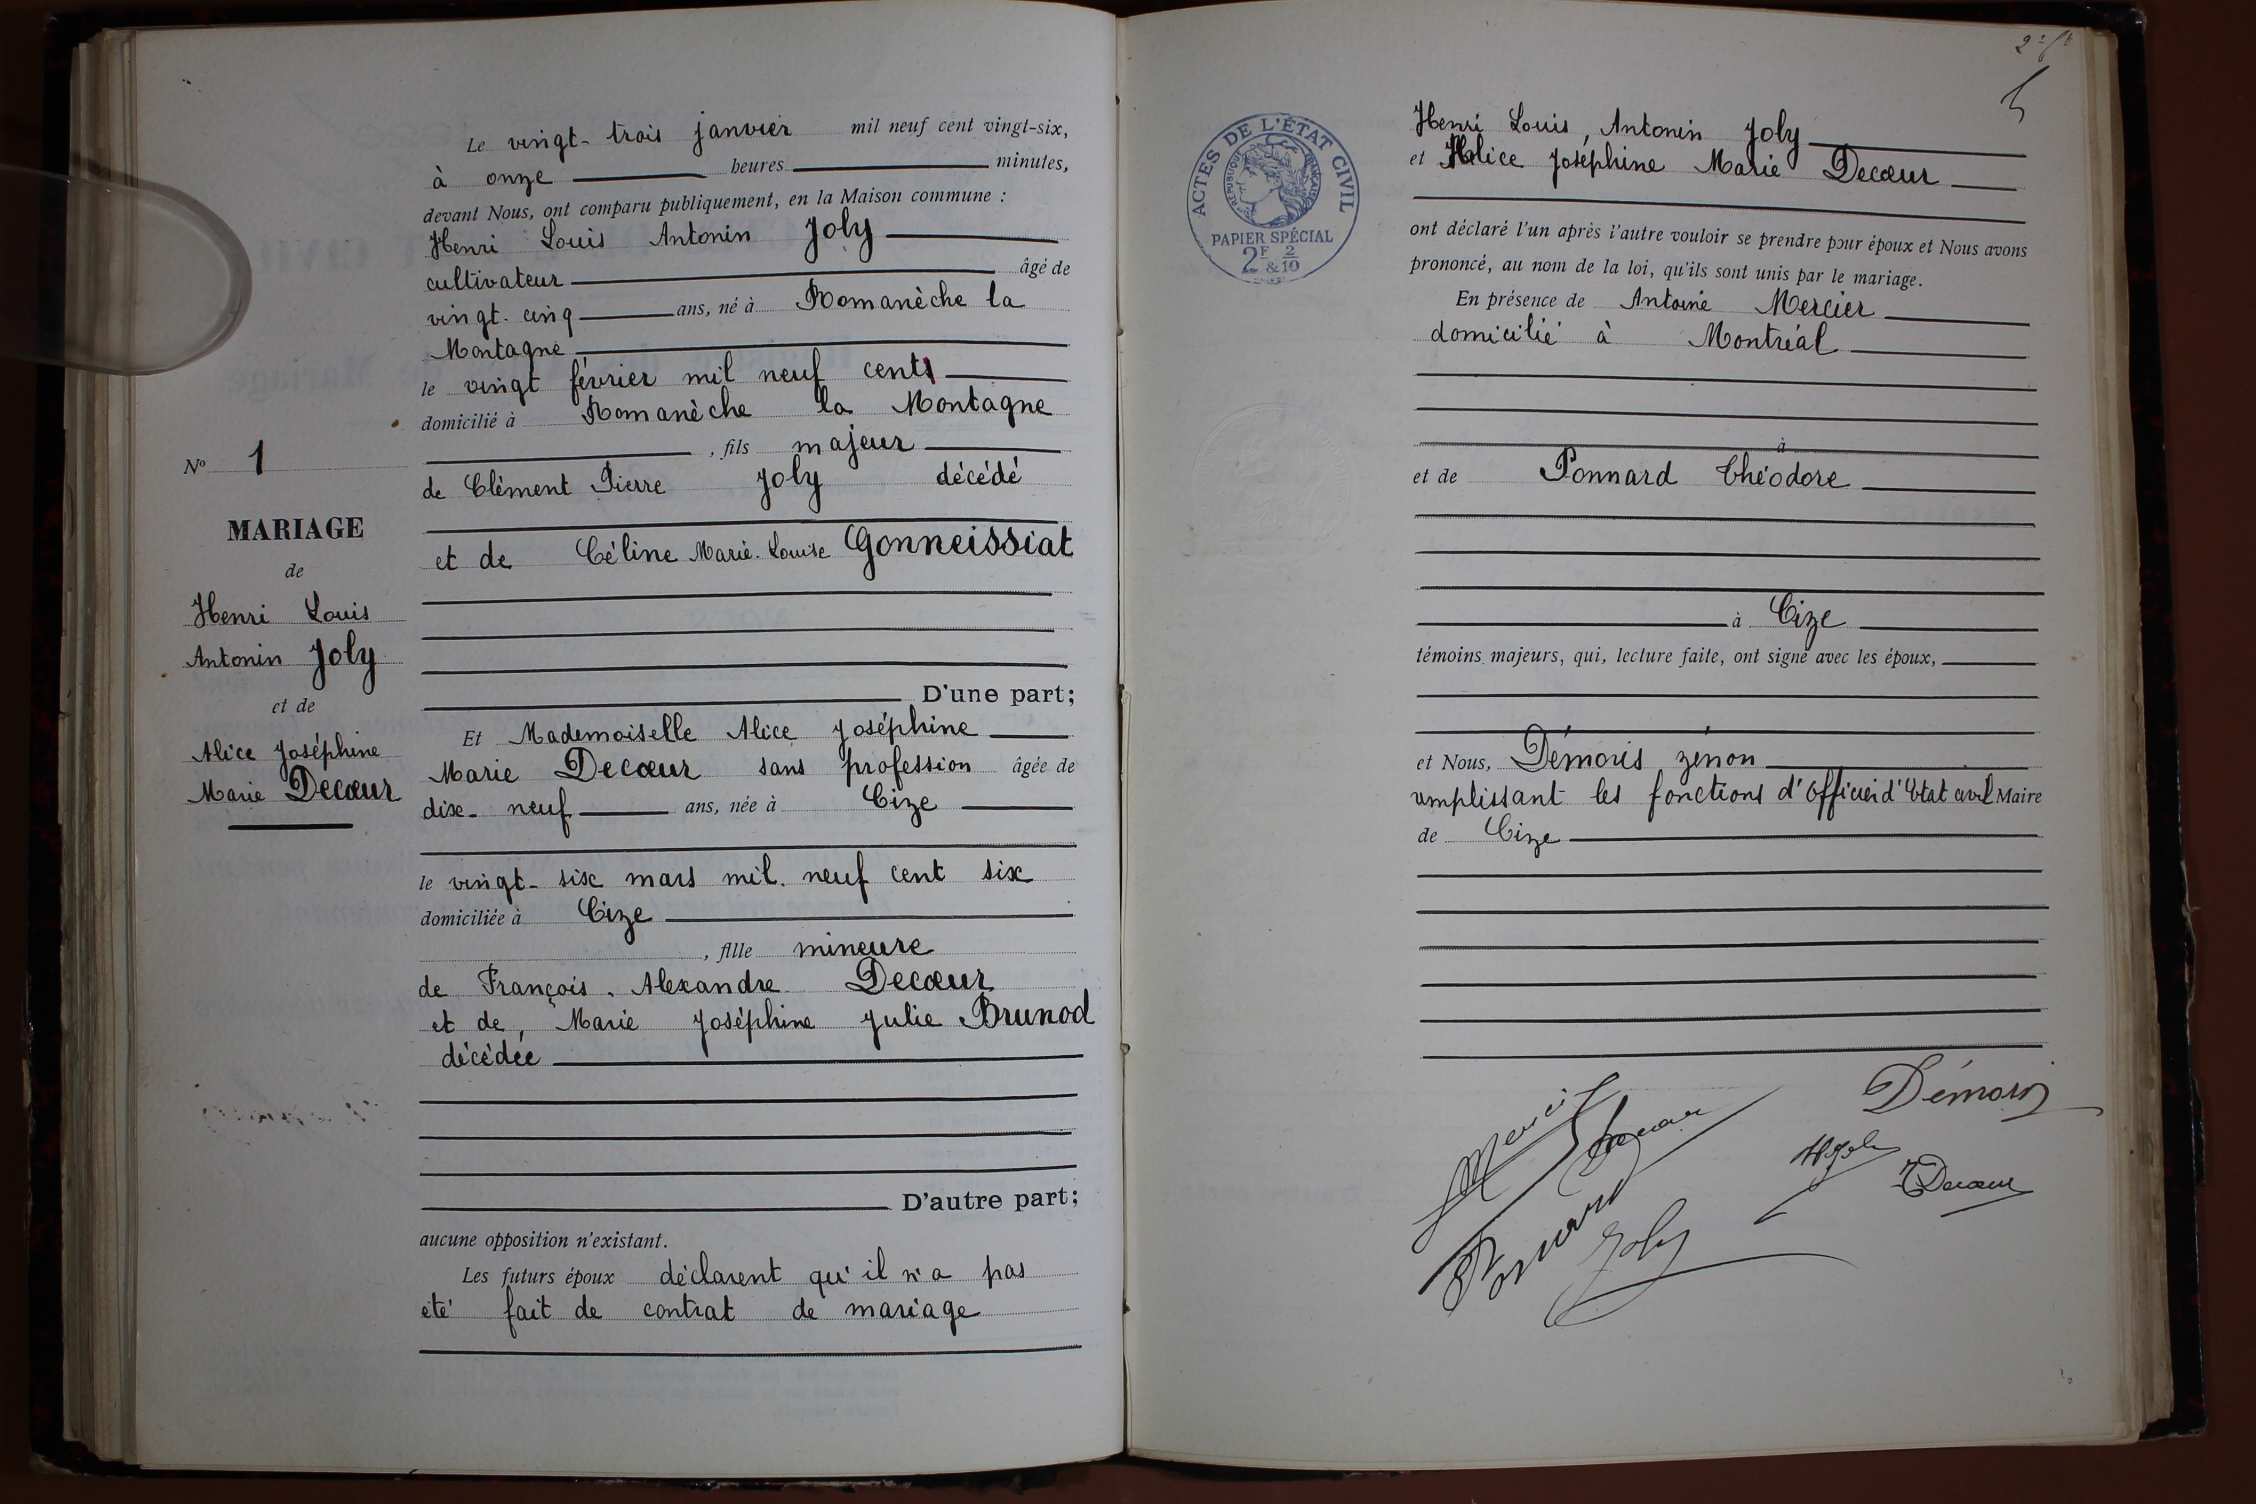 Le vingt-trois janvier mil neuf cent vingt-six,
à onze heures minutes,
devant Nous, ont comparu publiquement, en la Maison commune :
Henri Louis Antonin Joly
cultivateur âgé de
vingt-cinq ans, né à Romanèche la
Montagne
le vingt février mil neuf cents
domicilié à Romanèche la Montagne
, fils majeur
de Clément Pierre Joly décédé
et de Céline Marie-Louise Gonneissiat
D'une part;
Et Mademoiselle Alice Joséphine
Marie Decœur sans profession âgée de
dix-neuf ans, née à Cize
le vingt-six mars mil neuf cent six
domiciliée à Cize
, fille mineure
de François Alexandre Decœur
et de, Marie Joséphine Julie Brunod
décédée
D'autre part;
aucune opposition n'existant.
Les futurs époux déclarent qu'il n'a pas
été fait de contrat de mariage
No 1
MARIAGE
de
Henri Louis
Antonin Joly
et de
Alice Joséphine
Marie Decœur
ACTES DE L'ÉTAT CIVIL
RÉPUBLIQUE FRANÇAISE
PAPIER SPÉCIAL
2F & 2/10
Henri Louis, Antonin Joly
et Alice Joséphine Marie Decœur
ont déclaré l'un après l'autre vouloir se prendre pour époux et Nous avons
prononcé, au nom de la loi, qu'ils sont unis par le mariage.
En présence de Antoine Mercier
domicilié à Montréal
à
et de Ponnard Théodore
à Cize
témoins majeurs, qui, lecture faite, ont signé avec les époux,
et Nous, Démoris zénon
remplissant les fonctions d'Officier d'Etat civil Maire
de Cize
Démoris
Mercier
Decœur
HJoly
Decœur
Ponnard
Joly